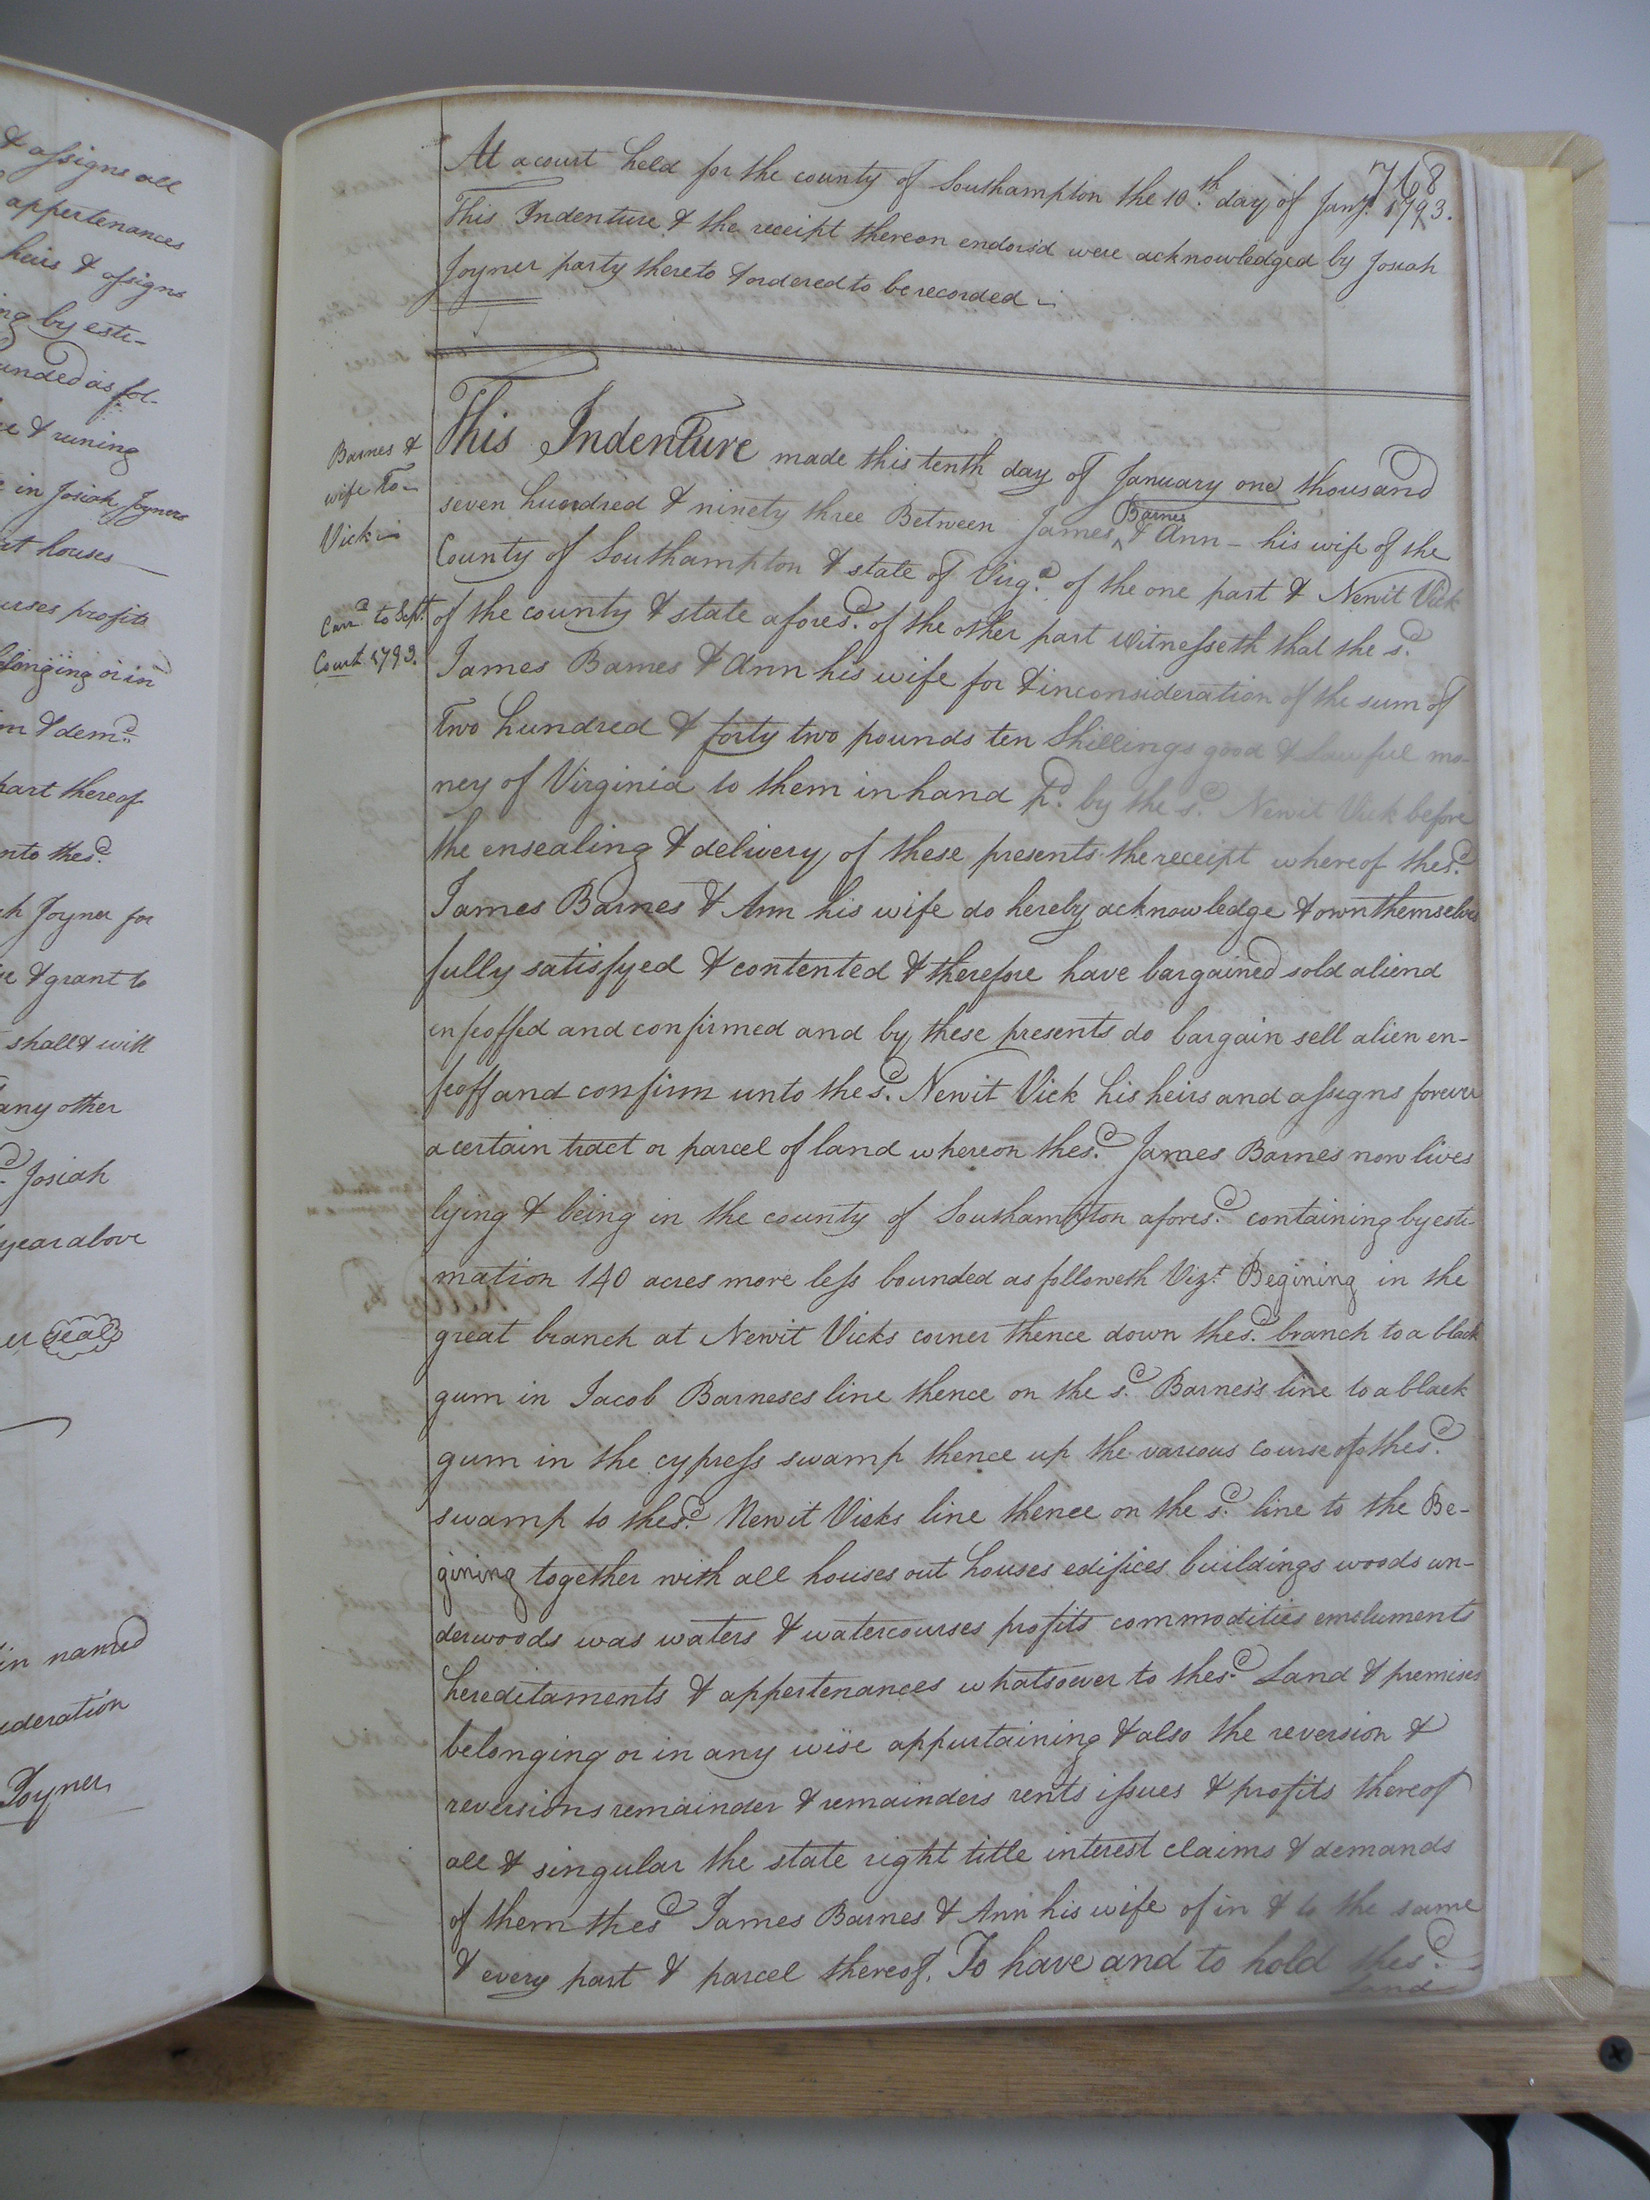 & assigns all
appertenances
heirs & assigns
ing by esti-
unded as fol-
& runing
in Josiah Joyners
at houses
urses profits
elonging or in
m & demd
part thereof
nto the sd
ah Joyner for
& grant to
shall & will
any other
Josiah
year above
Seal
in named
ideration
Joyner
768
At a court held for the county of Southampton the 10th. day of Jany. 1793.
This Indenture & the receipt thereon endorsd were acknowledged by Josiah
Joyner party thereto & ordered to be recorded
Barnes &
wife To
Vick
Card to Sept.
Court 1793.
This Indenture made this tenth day of January one thousand
seven hundred & ninety three Between James ^Barnes & Ann his wife of the
County of Southampton & state of Virga. of the one part & Newit Vick
of the county & state aforesd. of the other part Witnesseth that the sd.
James Barnes & Ann his wife for & in consideration of the sum of
Two hundred & forty two pounds ten Shillings good & Lawful mo-
ney of Virginia to them in hand pd. by the sd. Newit Vick before
the ensealing & delivery of these presents the receipt whereof the sd.
James Barnes & Ann his wife do hereby acknowledge & own themselves
fully satisfyed & contented & therefore have bargained sold aliend
enfeoffed and confirmed and by these presents do bargain sell alien en-
feoff and confirm unto the sd. Newit Vick his heirs and assigns forever
a certain tract or parcel of land whereon the sd. James Barnes now lives
lying & being in the county of Southampton aforesd. containing by esti-
mation 140 acres more less bounded as followeth Vizt. Begining in the
great branch at Newit Vicks corner thence down the sd. branch to a black
gum in Jacob Barneses line thence on the sd. Barnes's line to a black
gum in the cypress swamp thence up the various course of the sd.
swamp to the sd. Newit Vicks line thence on the sd. line to the Be-
gining together with all houses out houses edifices buildings woods un-
derwoods was waters & watercourses profits commodities emoluments
hereditaments & appertenances whatsoever to the sd. Land & premises
belonging or in any wise appurtaining & also the reversion &
reversions remainder & remainders rents issues & profits thereof
all & singular the state right title interest claims & demands
of them the sd James Barnes & Ann his wife of in & to the same
& every part & parcel thereof. To have and to hold the sd.
Land